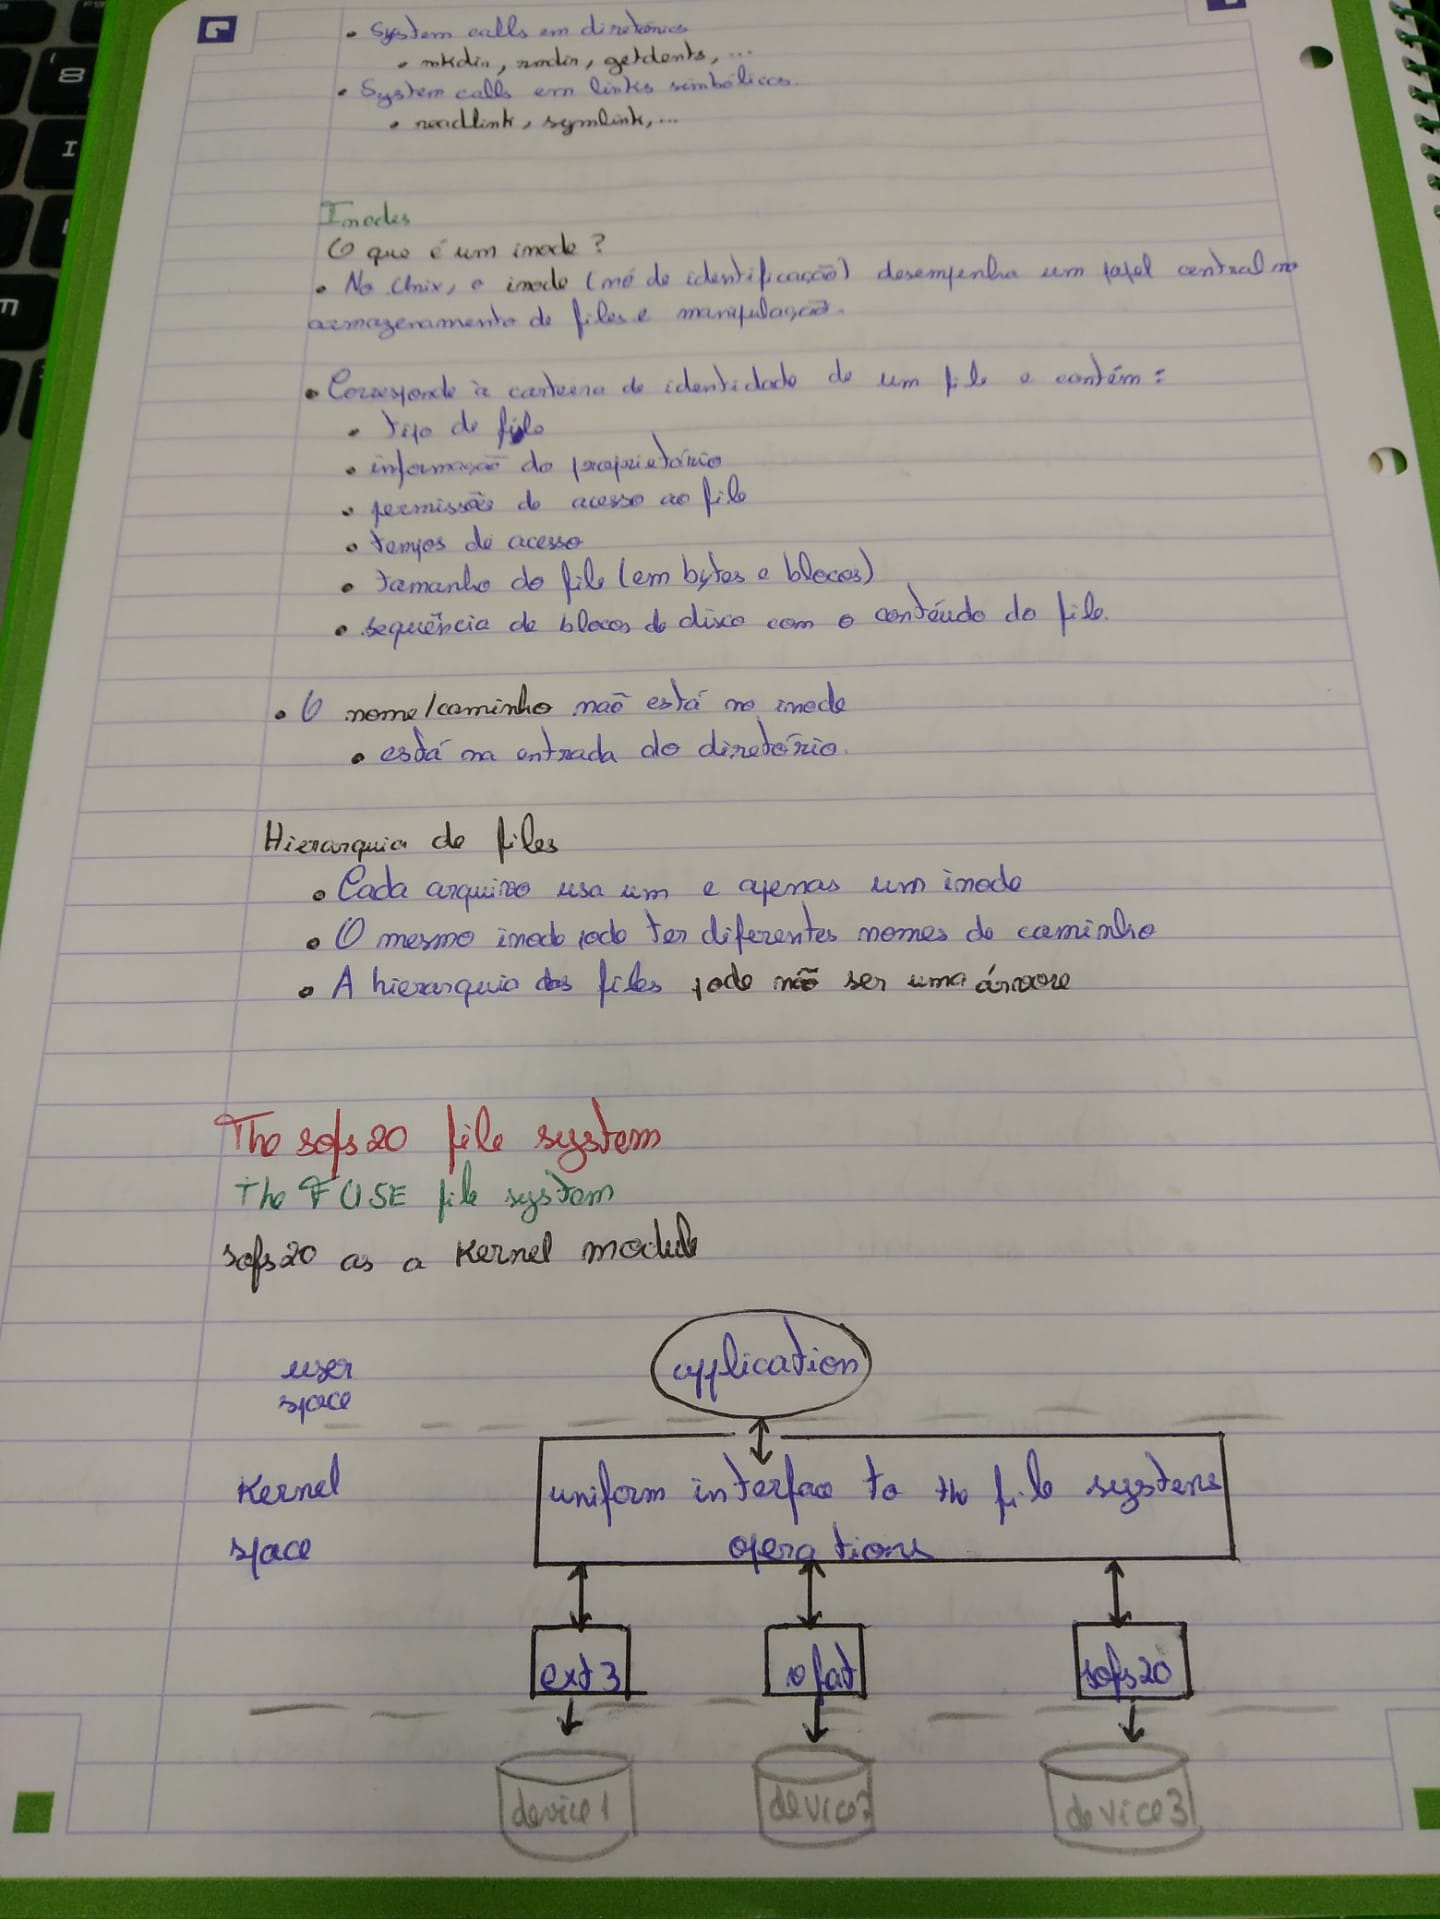 • System calls em diretórios
• mkdir, rmdir, getdents, ...
• System calls em links simbólicos.
• readlink, symlink, ...
Inodes
O que é um inode?
• No Unix, o inode (nó de identificação) desempenha um papel central no
armazenamento de files e manipulação.
• Corresponde à carteira de identidade de um file e contém:
• tipo de file
• informação do proprietário
• permissão de acesso ao file
• tempos de acesso
• tamanho do file (em bytes e blocos)
• sequência de blocos de disco com o contéudo do file.
• O nome/caminho não está no inode
• está na entrada do diretório.
Hierarquia de files
• Cada arquivo usa um e apenas um inode
• O mesmo inode pode ter diferentes nomes de caminho
• A hierarquia dos files pode não ser uma árvore
The sofs20 file system
The FUSE file system
sofs20 as a Kernel module
user
space
application
Kernel
space
uniform interface to the file systens
operations
ext3
sofs20
device1
device2
device3
8
I